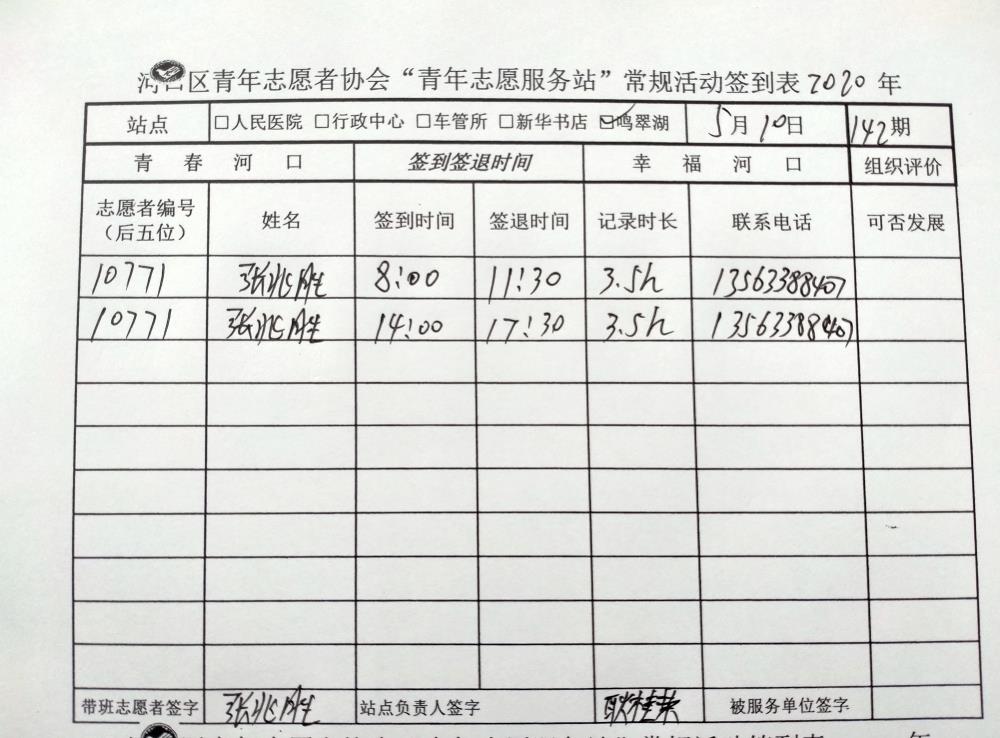 河口区青年志愿者协会“青年志愿服务站”常规活动签到表 2020 年
站点 □人民医院 □行政中心 □车管所 □新华书店 ☑鸣翠湖 5月10日 142期
青春河口 签到签退时间 幸福河口 组织评价
志愿者编号（后五位） 姓名 签到时间 签退时间 记录时长 联系电话 可否发展
10771 张兆胜 8:00 11:30 3.5h 13563388407
10771 张兆胜 14:00 17:30 3.5h 13563388407
带班志愿者签字 张兆胜 站点负责人签字 耿桂荣 被服务单位签字